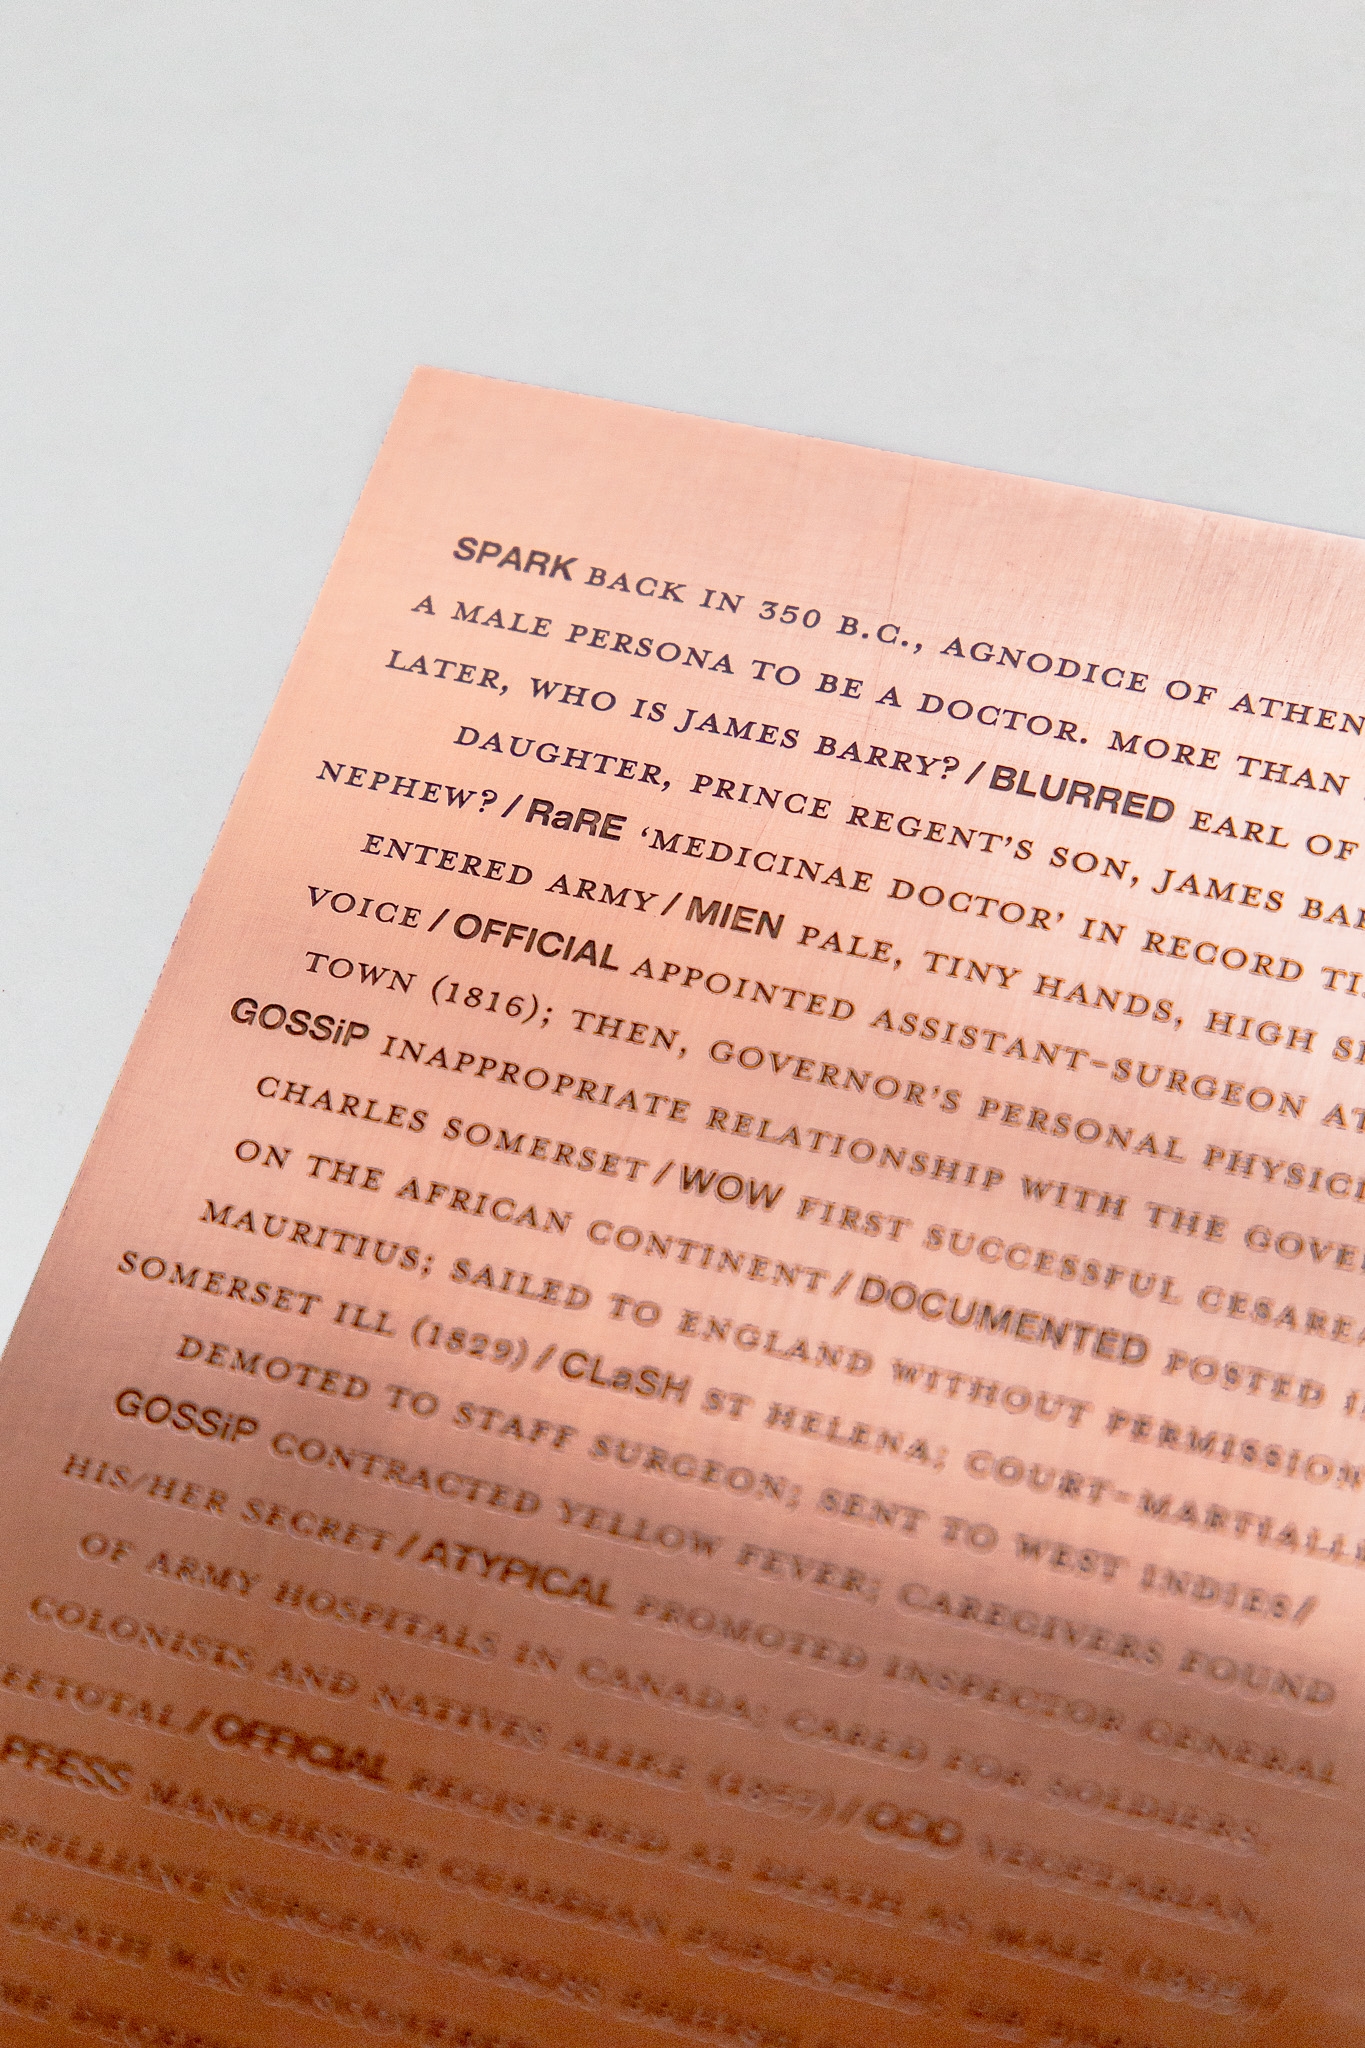 SPARK BACK IN 350 B.C., AGNODICE OF ATHEN
A MALE PERSONA TO BE A DOCTOR. MORE THAN
LATER, WHO IS JAMES BARRY? / BLURRED EARL OF
DAUGHTER, PRINCE REGENT'S SON, JAMES BAR
NEPHEW? / RaRE ‘MEDICINAE DOCTOR’ IN RECORD TI
ENTERED ARMY / MIEN PALE, TINY HANDS, HIGH
VOICE / OFFICIAL APPOINTED ASSISTANT-SURGEON AT
TOWN (1816); THEN, GOVERNOR'S PERSONAL PHYSICI
GOSSiP INAPPROPRIATE RELATIONSHIP WITH THE GOVE
CHARLES SOMERSET / WOW FIRST SUCCESSFUL CESAREA
ON THE AFRICAN CONTINENT / DOCUMENTED POSTED
MAURITIUS; SAILED TO ENGLAND WITHOUT PERMISSION
SOMERSET ILL (1829) / CLaSH ST HELENA; COURT-MARTIALL
DEMOTED TO STAFF SURGEON; SENT TO WEST INDIES /
GOSSiP CONTRACTED YELLOW FEVER; CAREGIVERS FOUND
HIS/HER SECRET / ATYPICAL PROMOTED INSPECTOR GENERAL
OF ARMY HOSPITALS IN CANADA; CARED FOR SOLDIERS,
COLONISTS AND NATIVES ALIKE (1857) / ODD VEGETARIAN,
EETOTAL / OFFICIAL REGISTERED AT DEATH AS MALE
PRESS MANCHESTER GUARDIAN PUBLISHED,
BRILLIANT SURGEON ACROSS
DEATH WAS